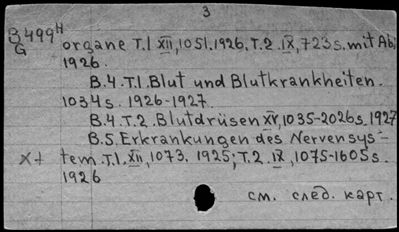 3
B499H
G
organe T.1 XII, 1051. 1926, T.2. IX, 723s. mit Ab.
1926.
B.4.T.1. Blut und Blutkrankheiten.
1034s. 1926-1927.
B.4.T.2. Blutdrüsen XV, 1035-2026s. 1927
B.5. Erkrankungen des Nervensys-
X+ tem. T.1. XII, 1073. 1925; T.2. IX, 1075-1605s.
1926
см. след. карт.